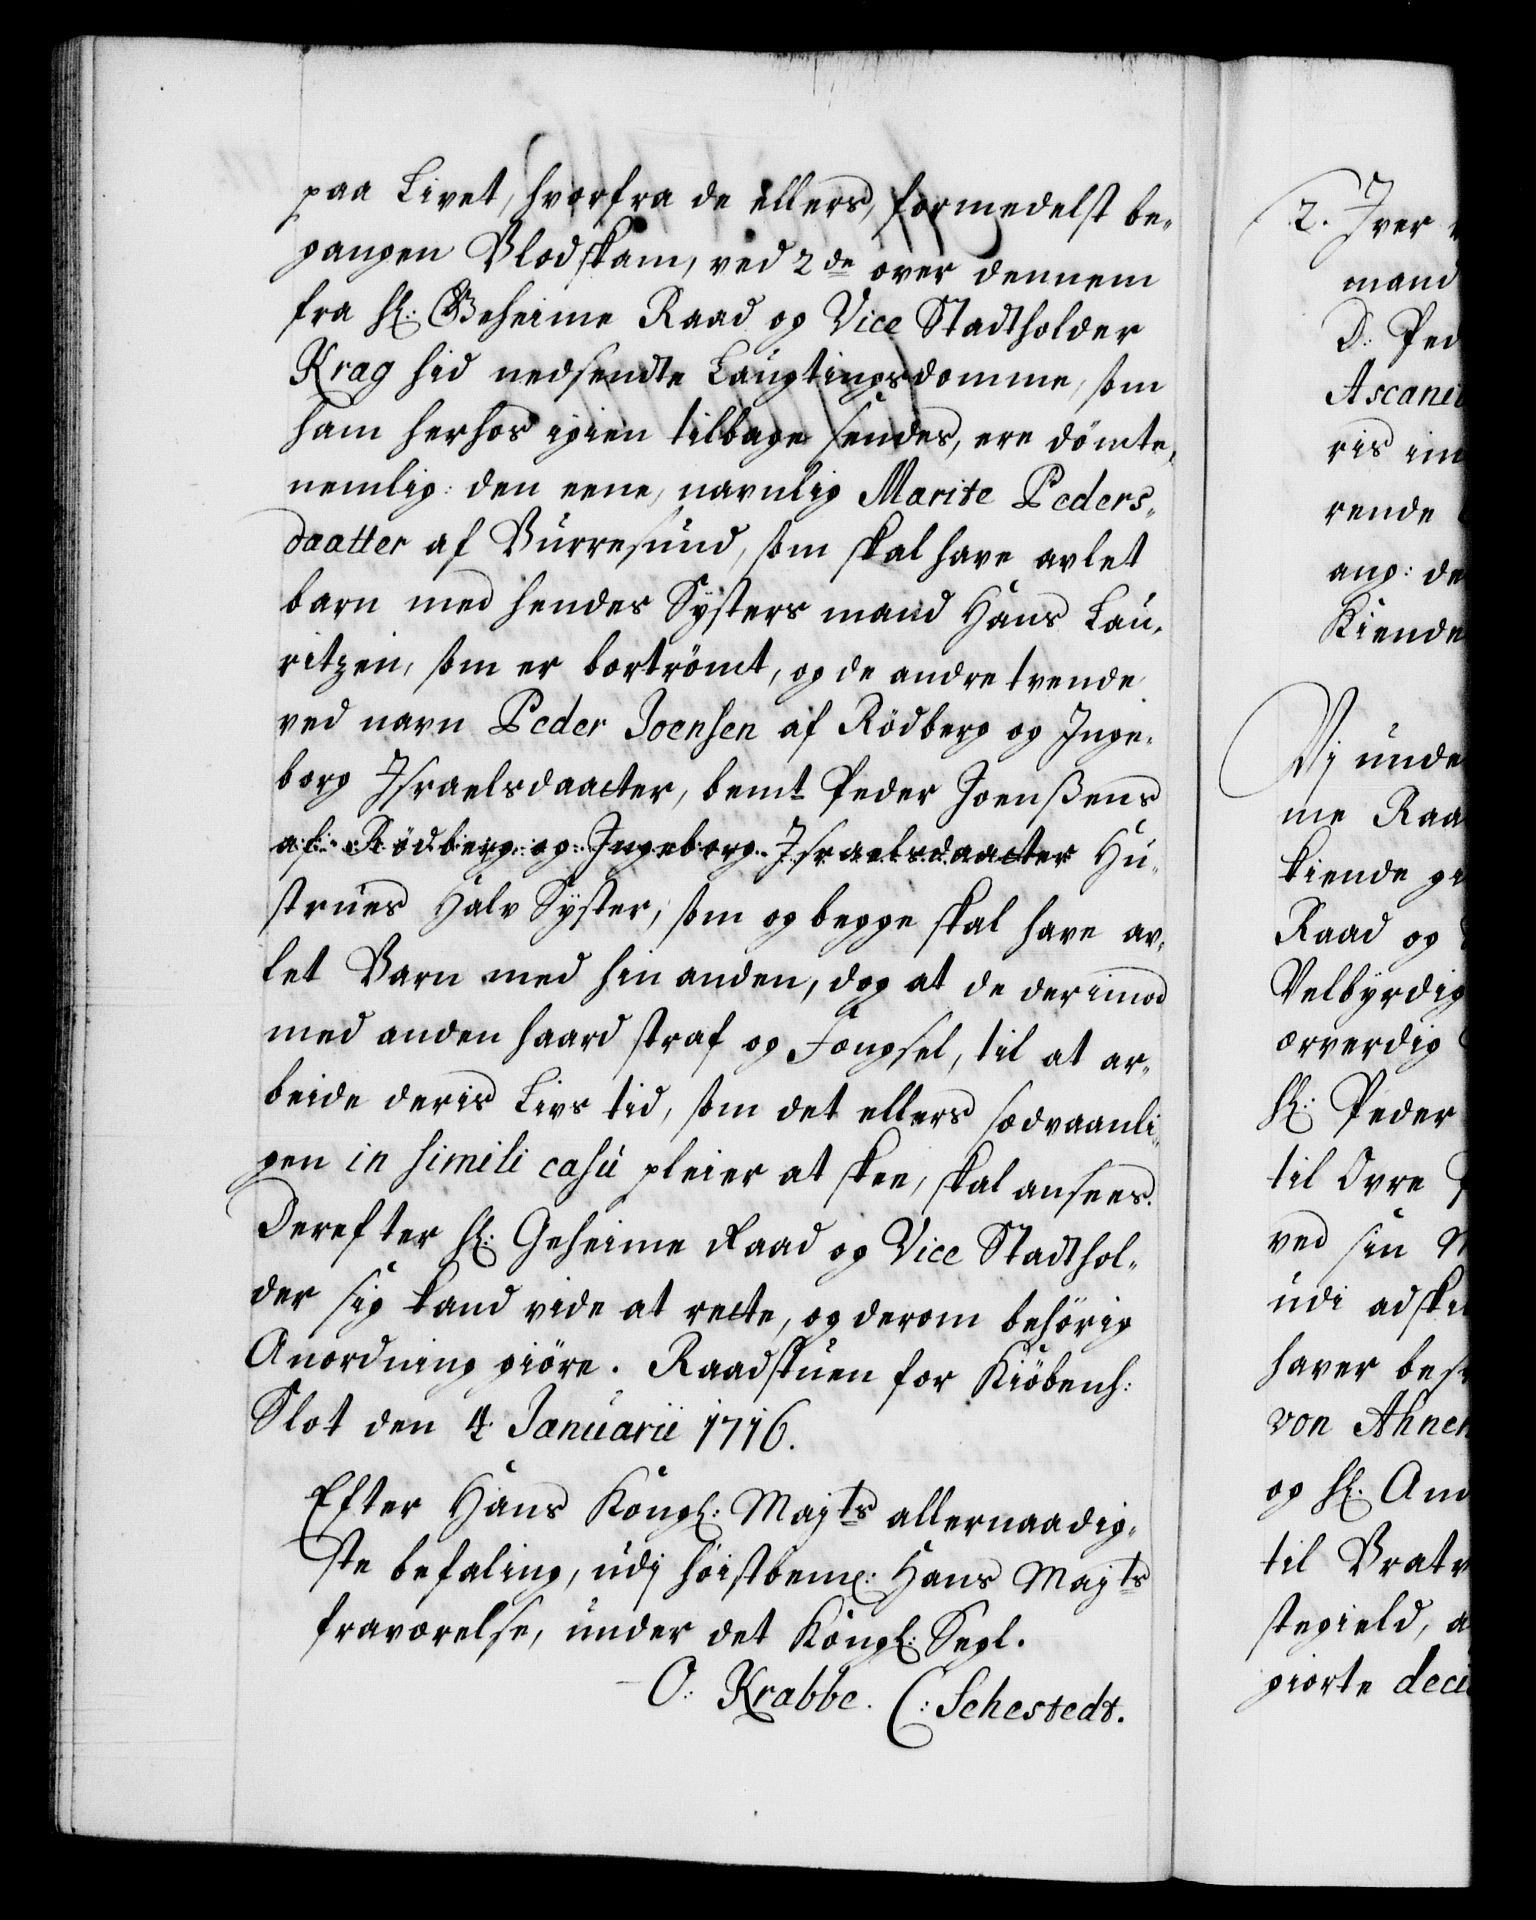 paa Livet, hvorfra de ellers, formedelst be„
gangen Blodskam, ved 2de over dennem
fra Hr: Geheime Raad og Vice Stadtholder
Krag hid nedsendte Laugtingsdomme, som
ham herhos igien tilbage sendes, ere dömte,
nemlig: den eene, navnlig Marite Peders„
daatter af Burresund, som skal have avlet
barn med hendes Systers mand Hans Lau„
ritzen, som er bortrömt, og de andre tvende
ved navn Peder Joensen af Rödberg og Inge„
borg Israelsdaatter, bemt Peder Joenßens
af Rödberg og Ingeborg Israelsdaatter Hu„
strues Halv Syster, som og begge skal have av„
let Barn med hin anden, dog at de derimod
med anden haard straf og Fængsel, til at ar„
beide deris Livs tid, som det ellers sædvaanli„
gen in simili casu pleier at skee, skal ansees.
Derefter Hr: Geheime Raad og Vice Stadthol„
der sig kand vide at rette, og derom behörig
Anordning giöre. Raadstuen for Kiöbenh:
Slot den 4 Januarii 1716.
Efter Hans Kongl: Majts allernaadig„
ste befaling, udj höistbemt: Hans Majts
fraværelse, under det Kongl: Segl.
O: Krabbe. C: Sehestedt.
2. Iver
mand
D. Ped
Ascani
ris im
rende
ang: de
Kiende
Vj unde
me Raa
kiende gi
Raad og
Velbyrdig
ærverdig
Hr: Peder
til Ovre
ved sin M
udi adski
haver best
von Ahnen
og Hr. And
til Bratv
stegield, a
giorte deci